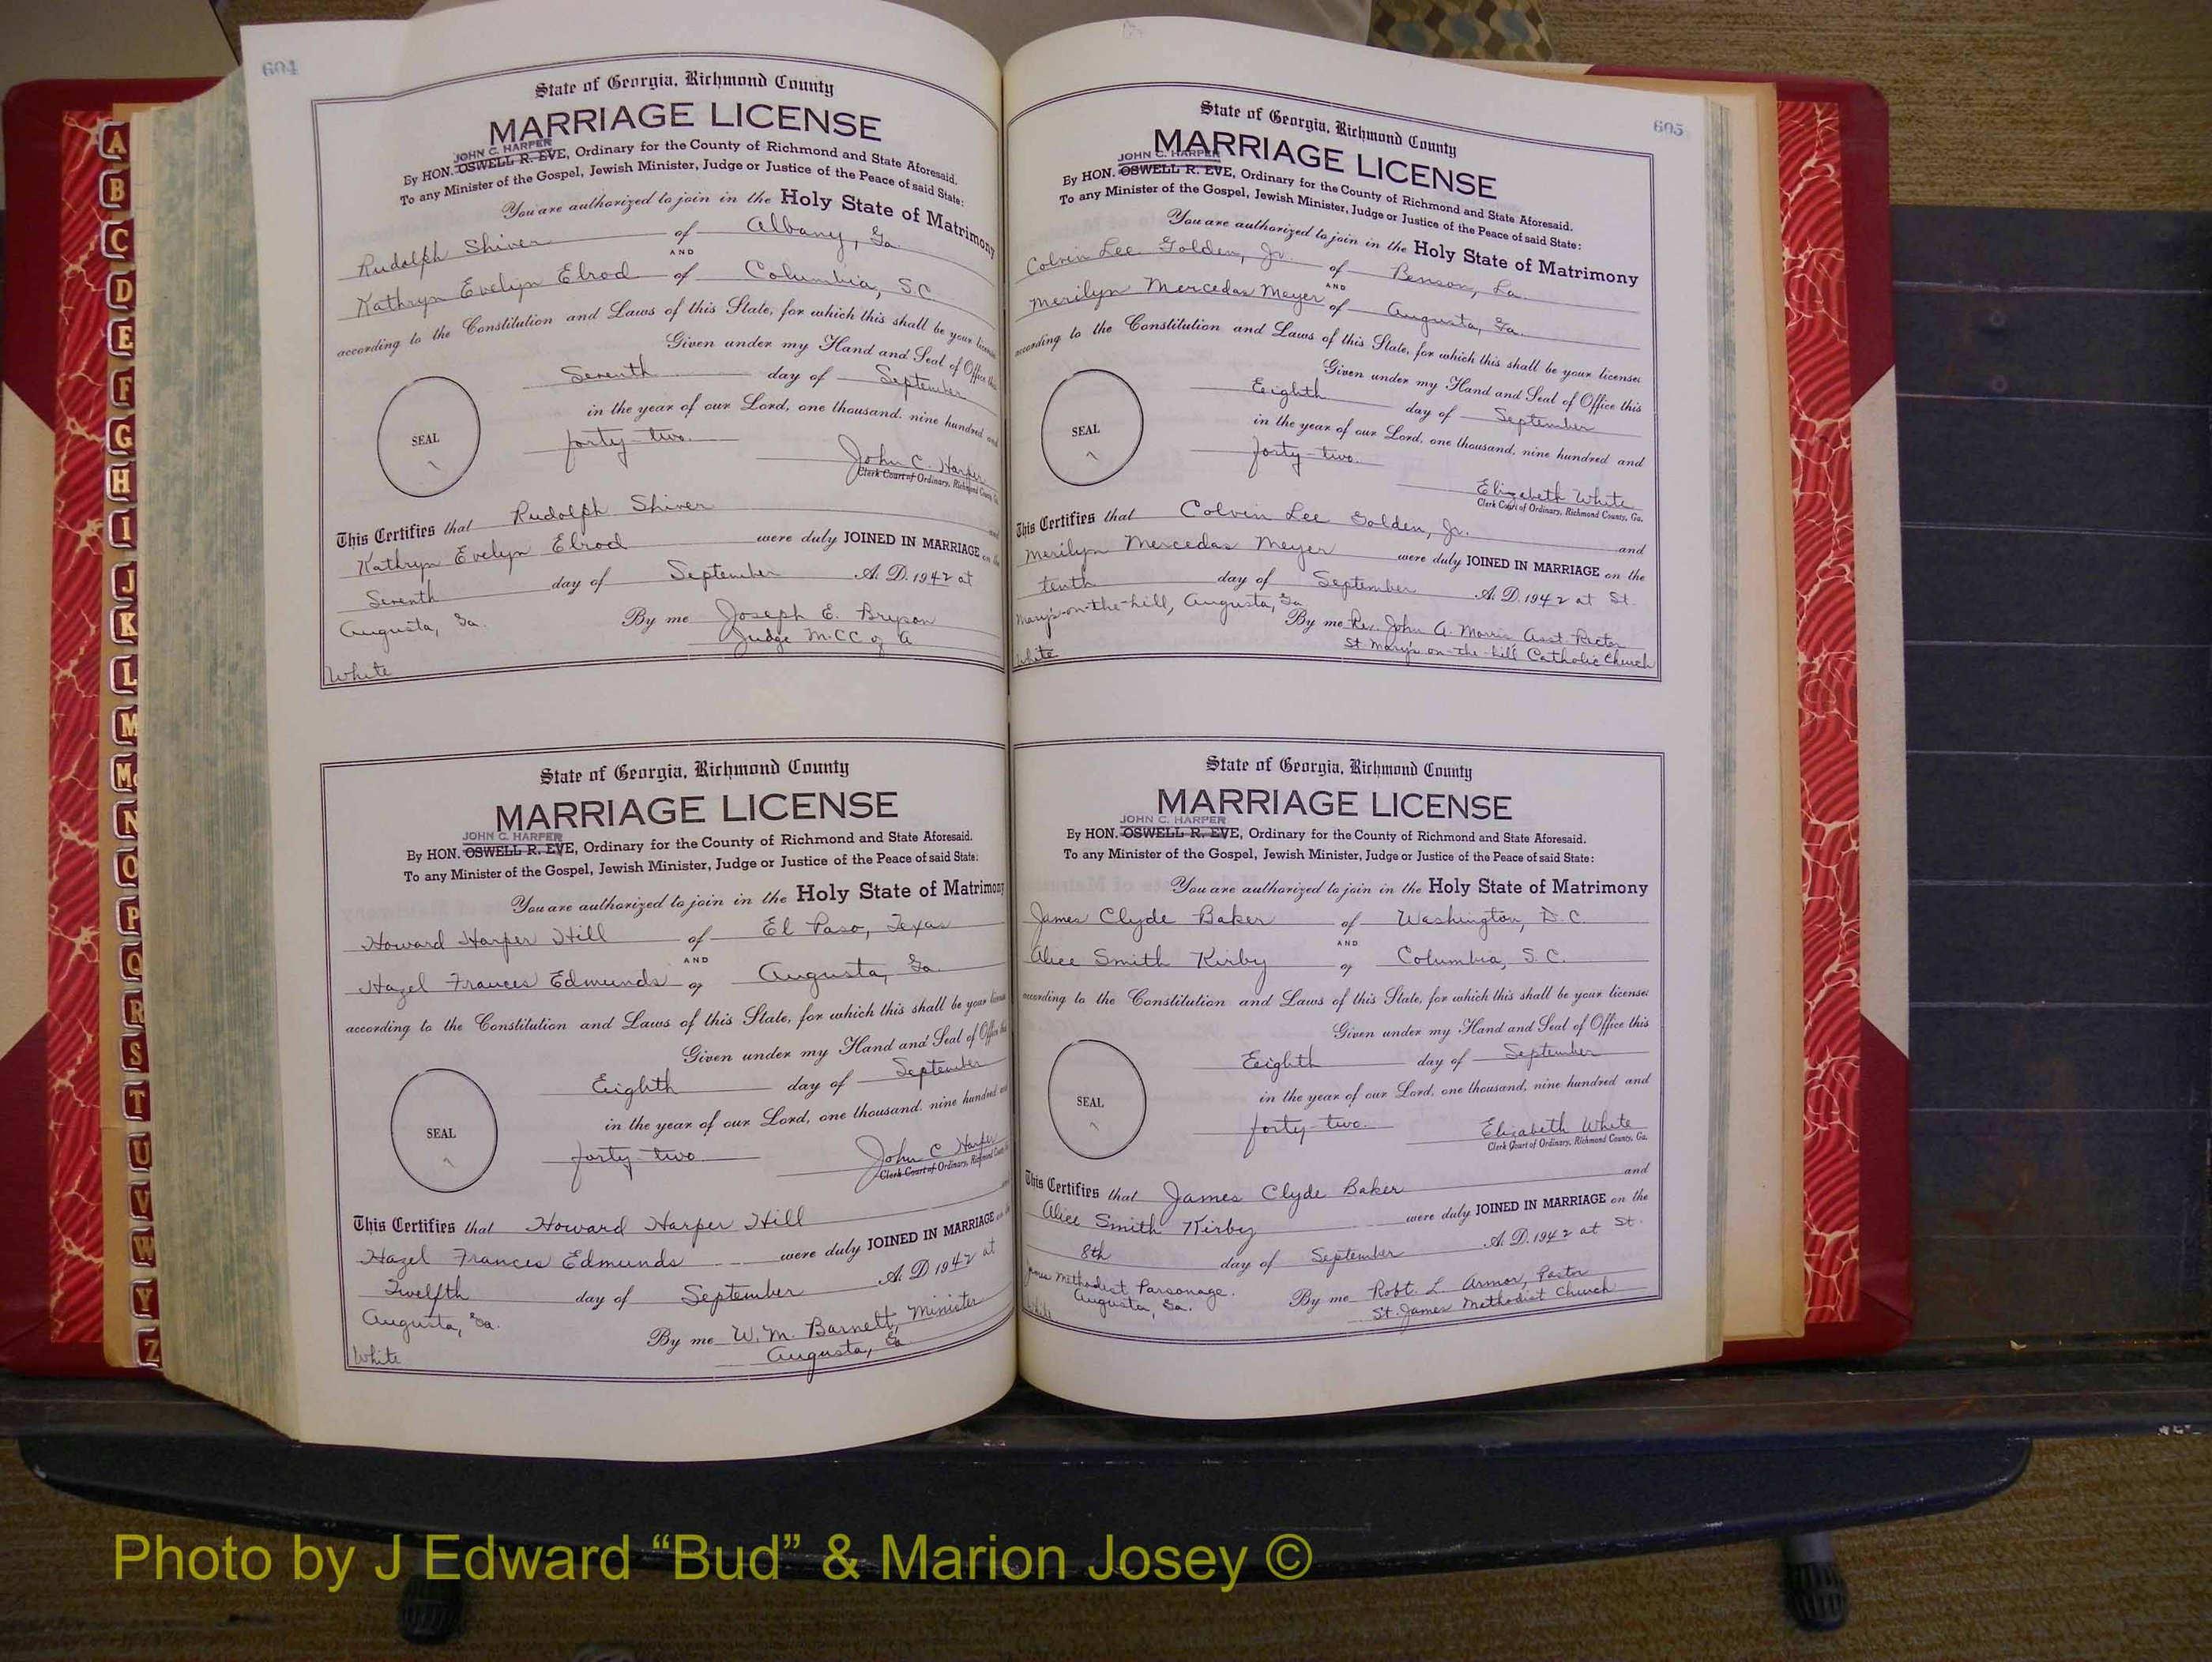 604
State of Georgia, Richmond County
MARRIAGE LICENSE
JOHN C. HARPER
By HON. OSWELL R. EVE, Ordinary for the County of Richmond and State Aforesaid.
To any Minister of the Gospel, Jewish Minister, Judge or Justice of the Peace of said State:
You are authorized to join in the Holy State of Matrimony
Rudolph Shiver of Albany, Ga.
AND
Kathryn Evelyn Elrod of Columbia, S.C.
according to the Constitution and Laws of this State, for which this shall be your license
Given under my Hand and Seal of Office this
Seventh day of September
in the year of our Lord, one thousand, nine hundred and
SEAL
forty-two.
John C. Harper
Clerk Court of Ordinary, Richmond County, Ga.
This Certifies that Rudolph Shiver and
Kathryn Evelyn Elrod were duly JOINED IN MARRIAGE on the
Seventh day of September A. D. 1942 at
Augusta, Ga. By me Joseph E. Bryson
Judge M.C.C of A
White
State of Georgia, Richmond County
MARRIAGE LICENSE
JOHN C. HARPER
By HON. OSWELL R. EVE, Ordinary for the County of Richmond and State Aforesaid.
To any Minister of the Gospel, Jewish Minister, Judge or Justice of the Peace of said State:
You are authorized to join in the Holy State of Matrimony
Howard Harper Hill of El Paso, Texas
AND
Hazel Frances Edmunds of Augusta, Ga.
according to the Constitution and Laws of this State, for which this shall be your license
Given under my Hand and Seal of Office this
Eighth day of September
in the year of our Lord, one thousand, nine hundred and
SEAL
forty-two.
John C Harper
Clerk Court of Ordinary, Richmond County
This Certifies that Howard Harper Hill and
Hazel Frances Edmunds were duly JOINED IN MARRIAGE on the
Twelfth day of September A. D. 1942 at
Augusta, Ga. By me W. M. Barnett, Minister
Augusta, Ga
White
605
State of Georgia, Richmond County
MARRIAGE LICENSE
JOHN C. HARPER
By HON. OSWELL R. EVE, Ordinary for the County of Richmond and State Aforesaid.
To any Minister of the Gospel, Jewish Minister, Judge or Justice of the Peace of said State:
You are authorized to join in the Holy State of Matrimony
Colvin Lee Golden, Jr. of Benson, La.
AND
Merilyn Mercedas Meyer of Augusta, Ga.
according to the Constitution and Laws of this State, for which this shall be your license:
Given under my Hand and Seal of Office this
Eighth day of September
in the year of our Lord, one thousand, nine hundred and
SEAL
forty-two.
Elizabeth White
Clerk Court of Ordinary, Richmond County, Ga.
This Certifies that Colvin Lee Golden, Jr. and
Merilyn Mercedas Meyer were duly JOINED IN MARRIAGE on the
tenth day of September A. D. 1942 at St.
Mary's-on-the-hill, Augusta, Ga By me Rev. John A. Morris Asst. Rector
St. Mary's on-the-hill Catholic Church
White
State of Georgia, Richmond County
MARRIAGE LICENSE
JOHN C. HARPER
By HON. OSWELL R. EVE, Ordinary for the County of Richmond and State Aforesaid.
To any Minister of the Gospel, Jewish Minister, Judge or Justice of the Peace of said State:
You are authorized to join in the Holy State of Matrimony
James Clyde Baker of Washington, D.C.
AND
Alice Smith Kirby of Columbia, S.C.
according to the Constitution and Laws of this State, for which this shall be your license:
Given under my Hand and Seal of Office this
Eighth day of September
in the year of our Lord, one thousand, nine hundred and
SEAL
forty-two.
Elizabeth White
Clerk Court of Ordinary, Richmond County, Ga.
This Certifies that James Clyde Baker and
Alice Smith Kirby were duly JOINED IN MARRIAGE on the
8th day of September A. D. 1942 at St.
James Methodist Parsonage.
Augusta, Ga. By me Robt. L. Armor, Pastor
St. James Methodist Church
White
A
B
C
D
E
F
G
H
I
J
K
L
M
Mc
N
O
P
Q
R
S
T
U
V
W
Y
Z
Photo by J Edward “Bud” & Marion Josey ©